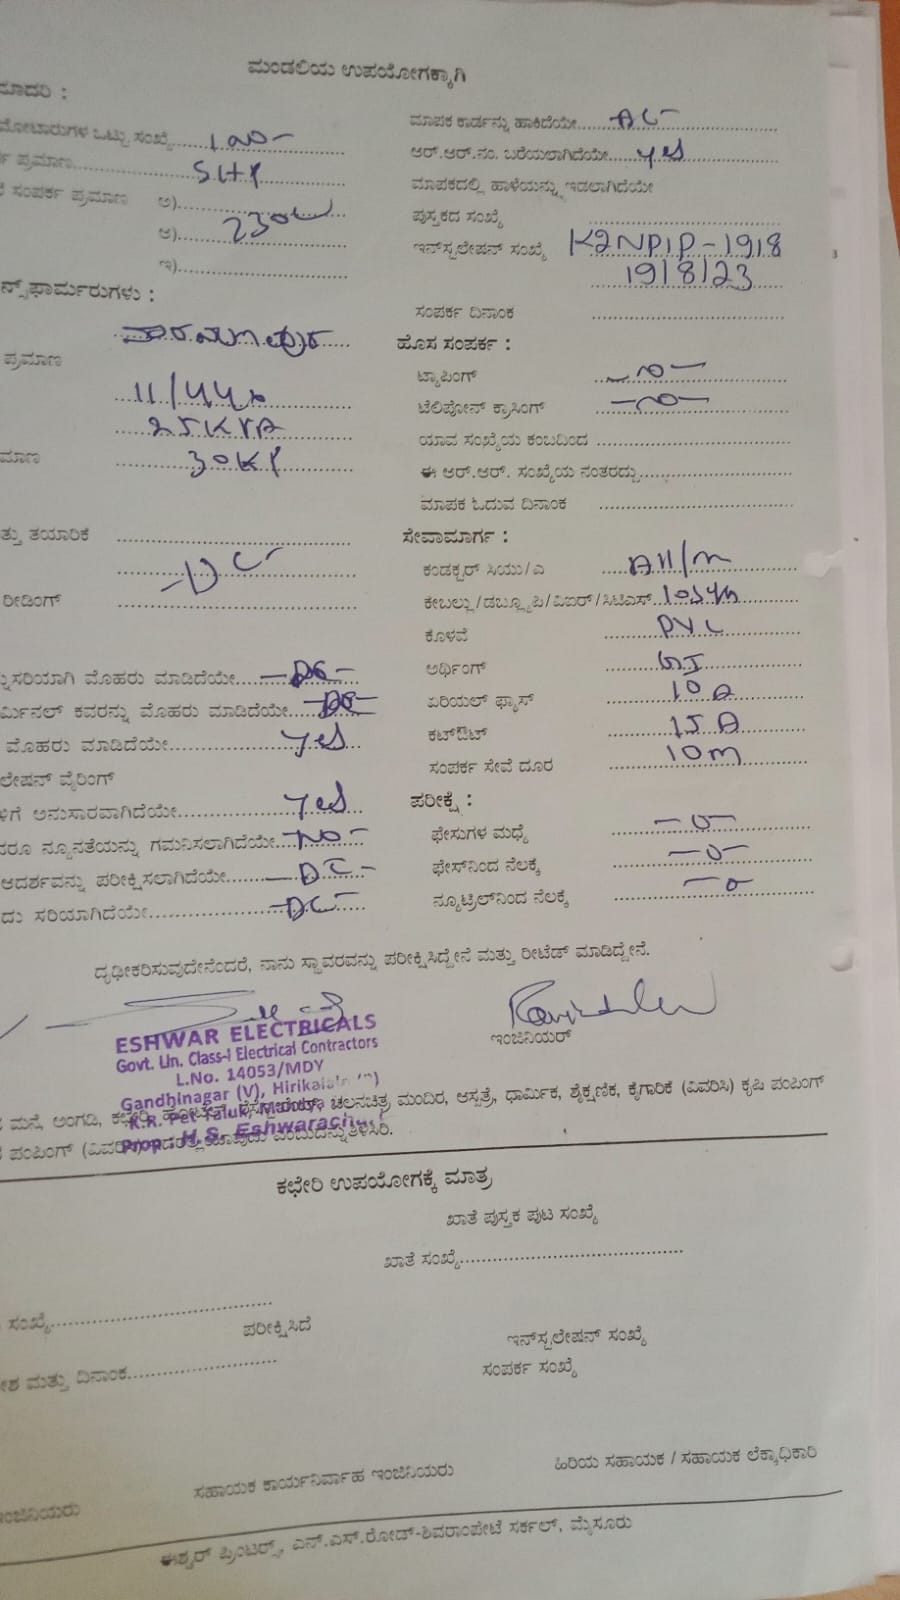 ಮಂಡಲಿಯ ಉಪಯೋಗಕ್ಕಾಗಿ
ಮಾದರಿ :
ಮೋಟಾರುಗಳ ಒಟ್ಟು ಸಂಖ್ಯೆ
ಪ್ರಮಾಣ 5HP
ಸಂಪರ್ಕ ಪ್ರಮಾಣ ಅ)
ಆ) 230v
ಇ)
ನ್ಸ್‌ಫಾರ್ಮರುಗಳು :
ಪ್ರಮಾಣ
11/440
25KVA
ಮಾಣ 30KV
ತ್ತು ತಯಾರಿಕೆ
ರೀಡಿಂಗ್
ನುಸರಿಯಾಗಿ ಮೊಹರು ಮಾಡಿದೆಯೇ
ರ್ಮಿನಲ್ ಕವರನ್ನು ಮೊಹರು ಮಾಡಿದೆಯೇ
ಮೊಹರು ಮಾಡಿದೆಯೇ yes
ಲೇಷನ್ ವೈರಿಂಗ್
ಳಿಗೆ ಅನುಸಾರವಾಗಿದೆಯೇ yes
ದರೂ ನ್ಯೂನತೆಯನ್ನು ಗಮನಿಸಲಾಗಿದೆಯೇ -NO-
ಆದರ್ಶವನ್ನು ಪರೀಕ್ಷಿಸಲಾಗಿದೆಯೇ
ದು ಸರಿಯಾಗಿದೆಯೇ
ಮಾಪಕ ಕಾರ್ಡನ್ನು ಹಾಕಿದೆಯೇ
ಆರ್.ಆರ್.ನಂ. ಬರೆಯಲಾಗಿದೆಯೇ yes
ಮಾಪಕದಲ್ಲಿ ಹಾಳೆಯನ್ನು ಇಡಲಾಗಿದೆಯೇ
ಪುಸ್ತಕದ ಸಂಖ್ಯೆ
ಇನ್‌ಸ್ಟಲೇಷನ್ ಸಂಖ್ಯೆ K2NPIP-1918
19/8/23
ಸಂಪರ್ಕ ದಿನಾಂಕ
ಹೊಸ ಸಂಪರ್ಕ :
ಟ್ಯಾಪಿಂಗ್
ಟೆಲಿಫೋನ್ ಕ್ರಾಸಿಂಗ್
ಯಾವ ಸಂಖ್ಯೆಯ ಕಂಬದಿಂದ
ಈ ಆರ್.ಆರ್. ಸಂಖ್ಯೆಯ ನಂತರದ್ದು
ಮಾಪಕ ಓದುವ ದಿನಾಂಕ
ಸೇವಾಮಾರ್ಗ :
ಕಂಡಕ್ಟರ್ ಸಿಯು/ಎ
ಕೇಬಲ್ಲು/ಡಬ್ಲ್ಯೂಪಿ/ವಿಐರ್/ಸಿಟಿಎಸ್
ಕೊಳವೆ PVC
ಅರ್ಥಿಂಗ್ GI
ಏರಿಯಲ್ ಫ್ಯೂಸ್ 10A
ಕಟ್‌ಔಟ್ 15A
ಸಂಪರ್ಕ ಸೇವೆ ದೂರ 10m
ಪರೀಕ್ಷೆ :
ಫೇಸುಗಳ ಮಧ್ಯೆ -0-
ಫೇಸ್‌ನಿಂದ ನೆಲಕ್ಕೆ -0-
ನ್ಯೂಟ್ರಲ್‌ನಿಂದ ನೆಲಕ್ಕೆ -0
ದೃಢೀಕರಿಸುವುದೇನೆಂದರೆ, ನಾನು ಸ್ಥಾವರವನ್ನು ಪರೀಕ್ಷಿಸಿದ್ದೇನೆ ಮತ್ತು ರೀಟೆಡ್ ಮಾಡಿದ್ದೇನೆ.
ಇಂಜಿನಿಯರ್
ESHWAR ELECTRICALS
Govt. Lin. Class-I Electrical Contractors
L.No. 14053/MDY
Gandhinagar (V), Hirikalale
K.R. Pet Taluk,
Prop: H.S. Eshwarachar
ಮನೆ, ಅಂಗಡಿ, ಕಛೇರಿ, ಚಲನಚಿತ್ರ ಮಂದಿರ, ಆಸ್ಪತ್ರೆ, ಧಾರ್ಮಿಕ, ಶೈಕ್ಷಣಿಕ, ಕೈಗಾರಿಕೆ (ವಿವರಿಸಿ) ಕೃಷಿ ಪಂಪಿಂಗ್
ಪಂಪಿಂಗ್ ಎಂಬುದನ್ನು ತಿಳಿಸಿರಿ.
ಕಛೇರಿ ಉಪಯೋಗಕ್ಕೆ ಮಾತ್ರ
ಖಾತೆ ಪುಸ್ತಕ ಪುಟ ಸಂಖ್ಯೆ
ಖಾತೆ ಸಂಖ್ಯೆ
ಸಂಖ್ಯೆ
ಪರೀಕ್ಷಿಸಿದೆ
ಇನ್‌ಸ್ಟಲೇಷನ್ ಸಂಖ್ಯೆ
ಸಂಪರ್ಕ ಸಂಖ್ಯೆ
ಶ ಮತ್ತು ದಿನಾಂಕ
ಇಂಜಿನಿಯರು
ಸಹಾಯಕ ಕಾರ್ಯನಿರ್ವಾಹ ಇಂಜಿನಿಯರು
ಹಿರಿಯ ಸಹಾಯಕ / ಸಹಾಯಕ ಲೆಕ್ಕಾಧಿಕಾರಿ
ಈಶ್ವರ್ ಪ್ರಿಂಟರ್ಸ್, ಎನ್.ಎಸ್.ರೋಡ್-ಶಿವರಾಂಪೇಟೆ ಸರ್ಕಲ್, ಮೈಸೂರು